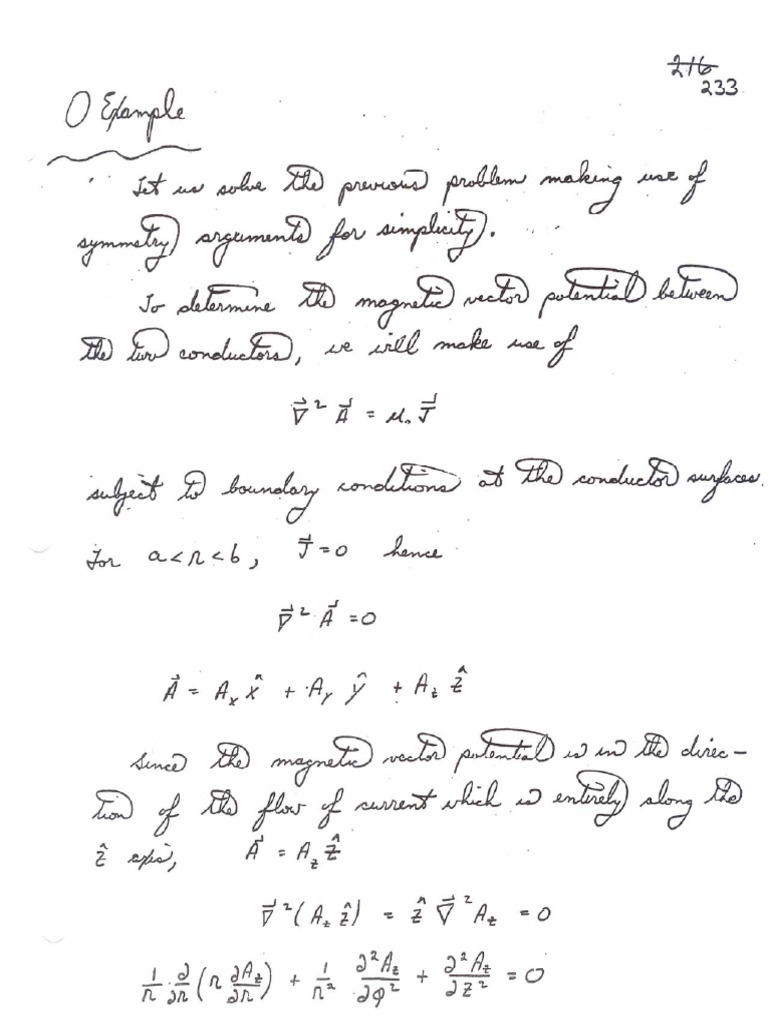 216
233
Example
Let us solve the previous problem making use of
symmetry arguments for simplicity.
To determine the magnetic vector potential between
the two conductors, we will make use of
∇⃗² A⃗ = μ₀ J⃗
subject to boundary conditions at the conductor surfaces.
For a<r<b, J⃗=0 hence
∇⃗² A⃗ =0
A⃗ = Aₓ x̂ + A_y ŷ + A_z ẑ
Since the magnetic vector potential is in the direc-
tion of the flow of current which is entirely along the
ẑ axis, A⃗ = A_z ẑ
∇⃗²(A_z ẑ) = ẑ ∇⃗² A_z = 0
1/r ∂/∂r (r ∂A_z/∂r) + 1/r² ∂²A_z/∂φ² + ∂²A_z/∂z² = 0